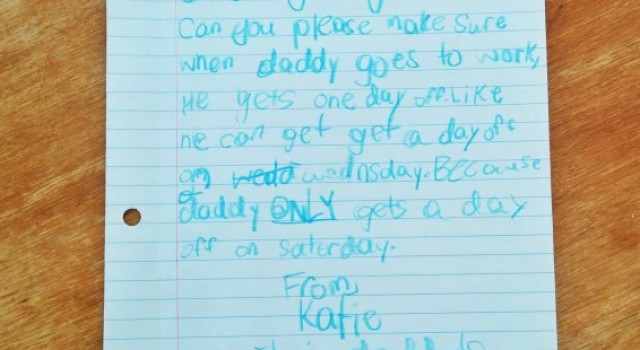 Can you please make sure
when daddy goes to work,
He gets one day off. Like
he can get get a day off
on wedn wednsday. BEcause
daddy ONLY gets a day
off on saturday.
From,
Katie